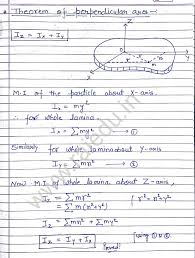 Theorem of perpendicular axes :-
Iz = Ix + Iy
M.I of the particle about X-axis.
Ix = my²
∴ for whole lamina
Ix = Σmy² → ①
Similarly for whole lamina about Y-axis.
Iy = Σmx² → ②
Now M.I of whole lamina about Z-axis,
Iz = Σmr² { r² = x² + y²
Iz = Σm(x² + y²)
Iz = Σmx² + Σmy²
Iz = Iy + Ix { using ① & ②
Proved
www.rojedu.in